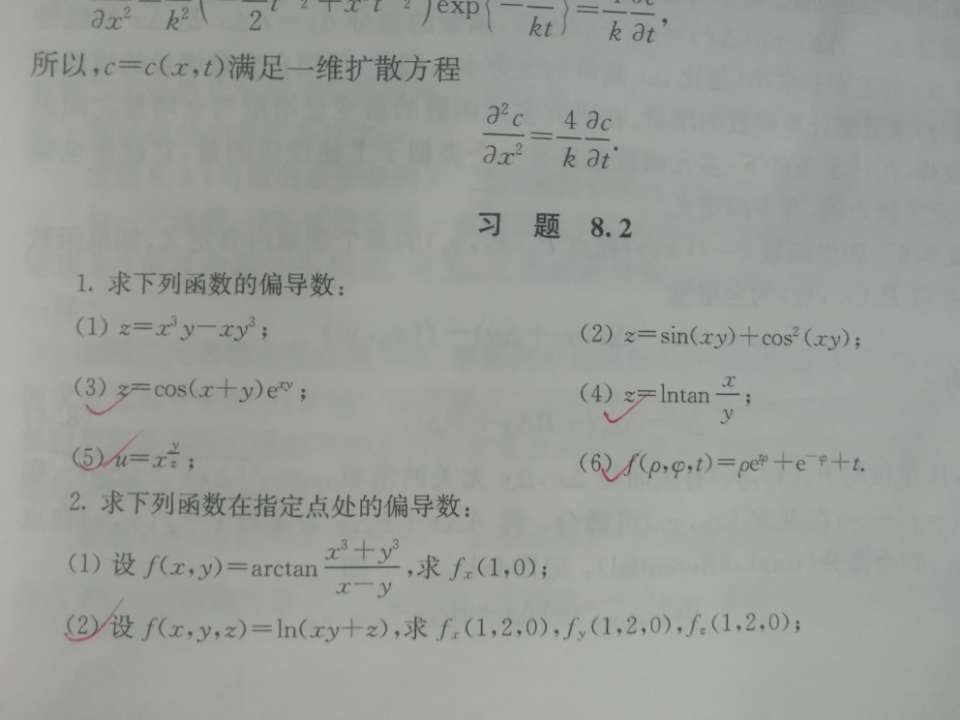 ∂x² k² ( − 2 t 2 + x² t 2 ) exp{ − kt } = k ∂t ,
所以,c=c(x,t)满足一维扩散方程
∂²c/∂x² = 4/k ∂c/∂t.
习 题 8.2
1. 求下列函数的偏导数:
(1) z=x³y−xy³; (2) z=sin(xy)+cos²(xy);
(3) z=cos(x+y)e^{xy}; (4) z=lntan x/y;
(5) u=x^{y/z}; (6) f(ρ,φ,t)=ρe^{tφ}+e^{−φ}+t.
2. 求下列函数在指定点处的偏导数:
(1) 设 f(x,y)=arctan (x³+y³)/(x−y),求 f_x(1,0);
(2) 设 f(x,y,z)=ln(xy+z),求 f_x(1,2,0),f_y(1,2,0),f_z(1,2,0);